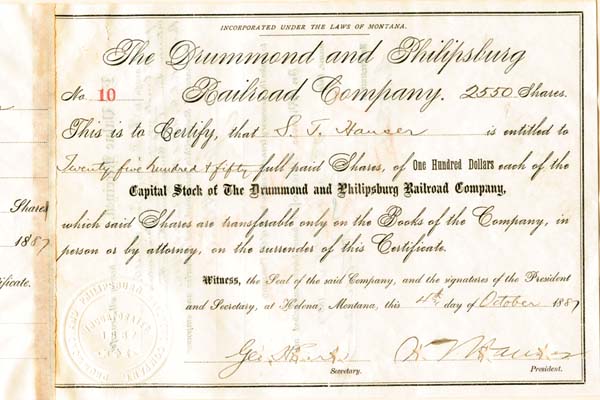 INCORPORATED UNDER THE LAWS OF MONTANA.
The Drummond and Philipsburg
Railroad Company.
No. 10
2550 Shares.
This is to Certify, that S. T. Hauser is entitled to
Twenty five hundred & fifty full paid Shares, of One Hundred Dollars each of the
Capital Stock of The Drummond and Philipsburg Railroad Company,
which said Shares are transferable only on the Books of the Company, in
person or by attorney, on the surrender of this Certificate.
Witness, the Seal of the said Company, and the signatures of the President
and Secretary, at Helena, Montana, this 4th day of October 1887
Secretary.
President.
Shares
1887
ificate.